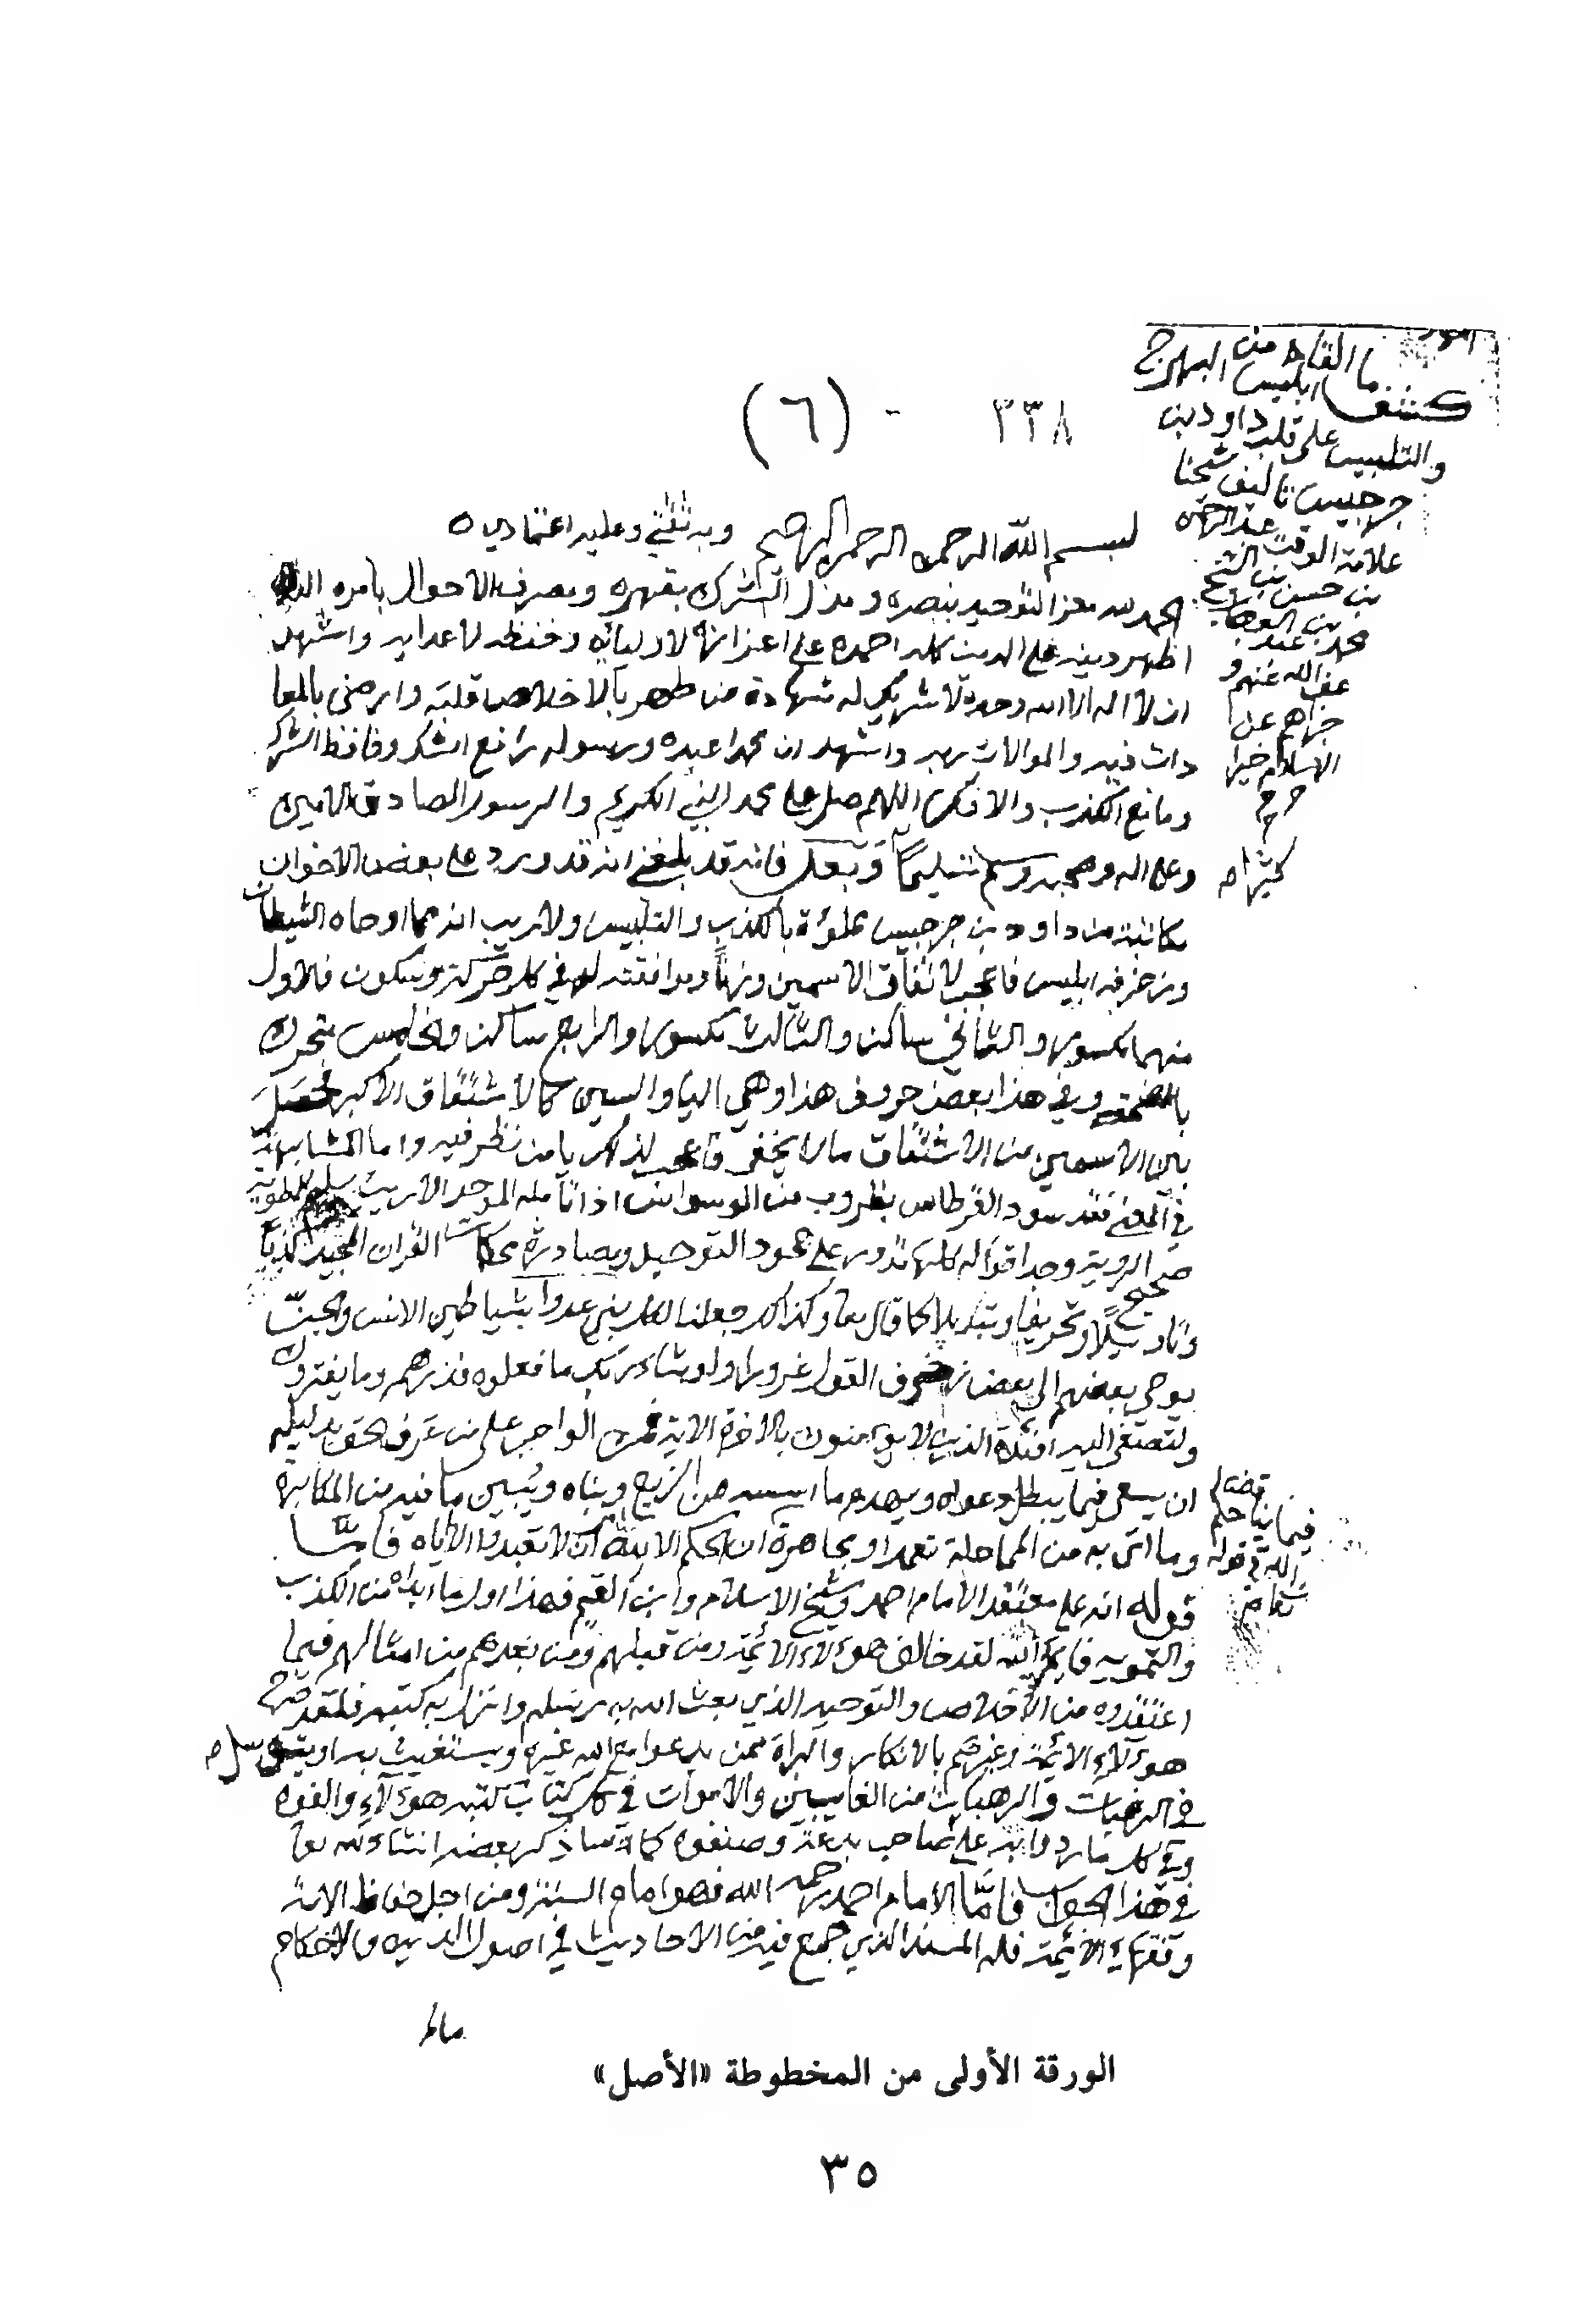 كشف ما القاه ابليس من البهرج
والتلبيس على قلب داود بن
جرجيس تاليف شيخنا
علامة الوقت عبد الرحمن
بن حسن بن الشيخ
محمد بن عبد الوهاب
عفى الله عنهم و
جزاهم عن
الاسلام خيرا
كثيرا
٣٣٨ - (٦)
بسم الله الرحمن الرحيم وبه ثقتي وعليه اعتمادي
الحمد لله معز التوحيد بنصره ومذل الشرك بقهره ومصرف الاحوال بامره الذي
اظهر دينه على الدين كله احمده على اعزازه لاوليائه وخفظه لاعدايه واشهد
ان لا اله الا الله وحده لا شريك له شهادة من طهر بالاخلاص قلبه وارضى بالمعا
دات فيه والموالات ربه واشهد ان محمدا عبده ورسوله رافع الشك وخافظ الشرك
ومانع الكذب والافك اللهم صل على محمد النبي الكريم والرسول الصادق الامين
وعلى اله وصحبه وسلم تسليما وبعد فانه قد بلغني انه قد ورد على بعض الاخوان
مكاتبة من داود بن جرجيس مملؤة بالكذب والتلبيس ولا ريب انه مما اوحاه الشيطان
وزخرفه ابليس فاعجب لاتفاق الاسمين وزنا وموافقته له في كل حركة وسكون فالاول
منهما مكسور والثاني ساكن والثالث مكسور والرابع ساكن والخامس متحرك
بالضمة وفي هذا بعض حروف هذا وهي اليا والسين كالاشتقاق الاكبر فحصل
بين الاسمين من الاشتقاق ما لا يخفى فاعجب لذلك يا من نظر فيه واما المشابهة
في المعنى فقد سود القرطاس بضروب من الوسواس اذا تامله الموحد الاريب سليم الطوية
صحيح الروية وجد اقواله كلها تدور على جحود التوحيد ومصادرة محكمات القران المجيد تكذيبا
وتاويلا وتحريفا وتبديلا كما قال تعا وكذلك جعلنا لكل نبي عدوا شياطين الانس والجن
يوحي بعضهم الى بعض زخرف القول غرورا ولو شاء ربك ما فعلوه فذرهم وما يفترون
ولتصغى اليه افئدة الذين لا يؤمنون بالاخرة الاية فمن الواجب على من عرف الحق بدليله
ان يسعى فيما يبطل دعواه ويهدم ما اسسه من الزيغ وبناه ويبين ما فيه من المكابرة
وما اتى به من المماحلة تعمدا ومجاهرة ان الحكم الا لله امر ان لا تعبدوا الا اياه فاما
فيما يناقض حكم
الله في قوله
تعا
قوله انه على معتقد الامام احمد وشيخ الاسلام وابن القيم فهذا اول ما ابداه من الكذب
والتمويه فايم الله لقد خالف هؤلاء الائمة ومن قبلهم ومن بعدهم من امثالهم فيما
اعتقدوه من الاخلاص والتوحيد الذي بعث الله به رسله وانزل به كتبه فلقد صرح
هؤلاء الائمة وغيرهم بالانكار والبراة ممن يدعوا مع الله غيره ويستغيث به او يتوسل
في الرغبات والرهبات من الغايبين والاموات في كل كتاب كتبه هؤلاء والفوه
وفي كل ما ردوا به على صاحب بدعة وصنفوه كما سا ذكر بعضه انشاء الله تعا
في هذا الجواب فاما الامام احمد رحمه الله فهو امام السنة ومن اجل حفاظ الامة
وفقهاء الائمة فله المسند الذي جمع فيه من الاحاديث في اصول الدين والاحكام
مالم
الورقة الأولى من المخطوطة «الأصل»
٣٥